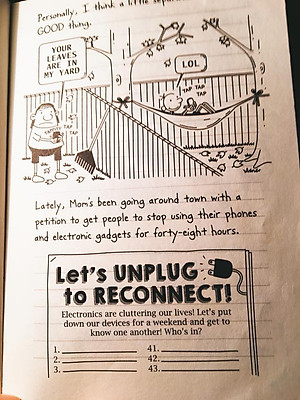 Personally, I think a little
GOOD thing.
YOUR
LEAVES
ARE IN
MY YARD
LOL
TAP
TAP
TAP
TAP
TAP
TAP
Lately, Mom's been going around town with a
petition to get people to stop using their phones
and electronic gadgets for forty-eight hours.
Let's UNPLUG
to RECONNECT!
Electronics are cluttering our lives! Let's put
down our devices for a weekend and get to
know one another! Who's in?
1. 41.
2. 42.
3. 43.